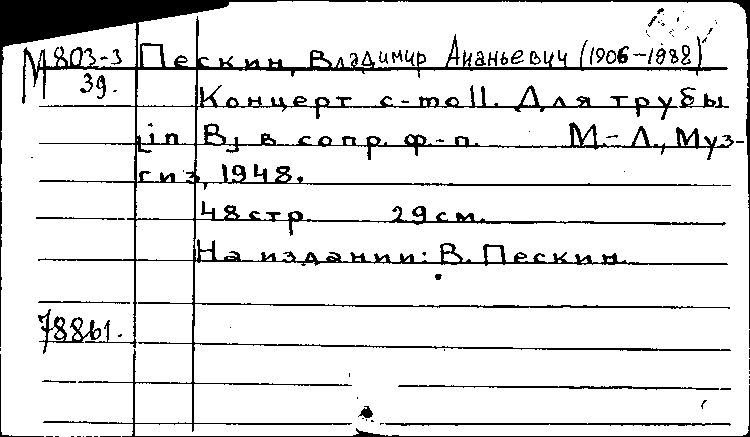 М803-3 Пескин, Владимир Ананьевич (1906-1988)
39.
Концерт c-moll. Для трубы
[in B] в сопр. ф-п. М.-Л., Муз-
гиз, 1948.
48 стр. 29 см.
На издании: В. Пескин.
78861.